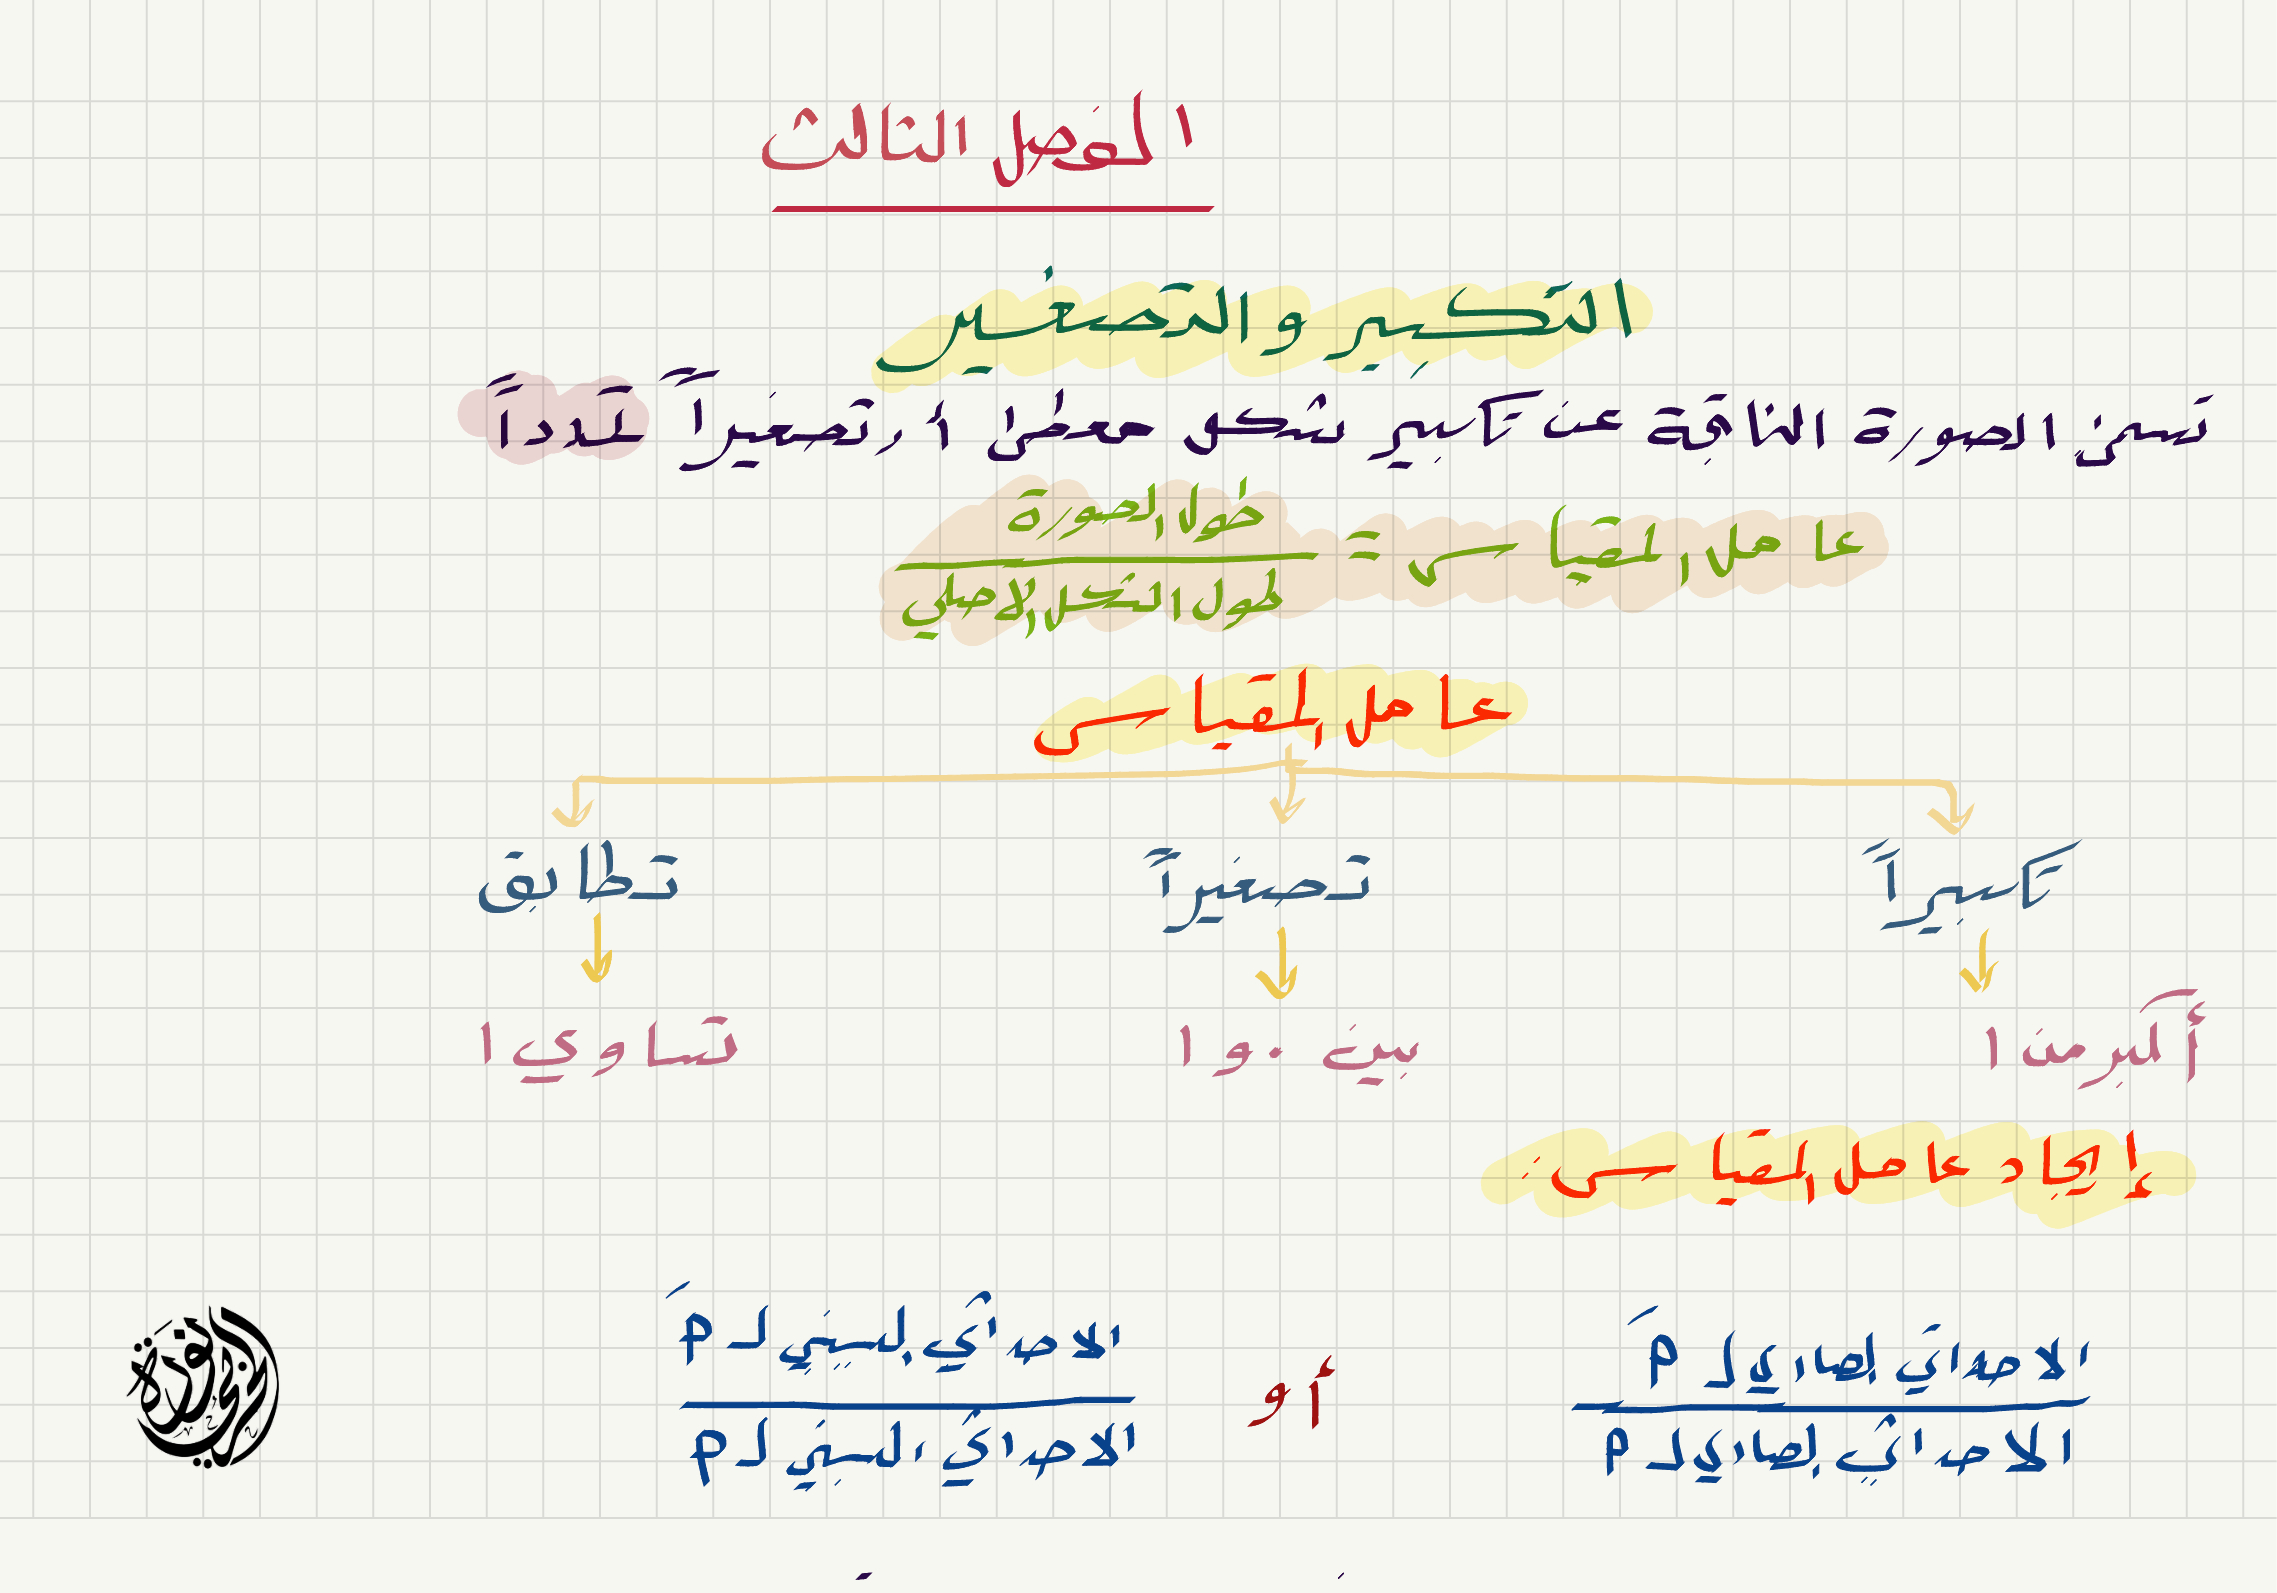 الفصل الثالث
التكبير والتصغير
تسمى الصورة الناتجة عن تكبير شكل معطى أو تصغيراً تمدداً
عامل المقياس = طول الصورة
طول الشكل الأصلي
عامل المقياس
تكبيراً تصغيراً تطابق
أكبر من ١ بين ٠ و ١ تساوي ١
إيجاد عامل المقياس :
الاحداثي الصادي لـ مَ أو الاحداثي السيني لـ مَ
الاحداثي الصادي لـ م الاحداثي السيني لـ م